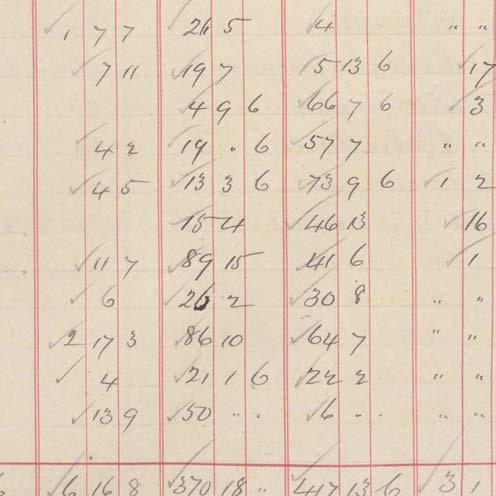 1 7 7 26 5 4 " "
7 11 19 7 5 13 6 17
4 9 6 66 7 6 3
4 2 19 " 6 57 7 " "
4 5 13 3 6 73 9 6 1 2
15 4 46 13 16
11 7 89 15 41 6 1
6 26 2 30 8 " "
2 17 3 86 10 64 7 " "
4 21 1 6 22 2 " "
13 9 50 " " 6 " " " "
6 16 8 370 18 " 417 13 6 3 1